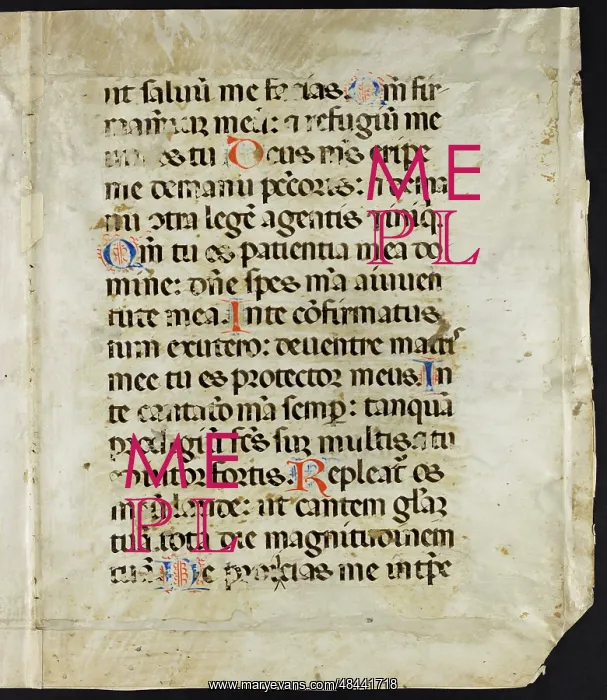 ut saluū me facias. Qm̄ fir-
mamētuʒ meū: ⁊ refugiū me
es tu Deus m̄s eripe
me demanu pc̄coris: ⁊ dema
nu ↄtra legē agentis ⁊ iniq̄.
Qm̄ tu es patientia mea do
mine: dn̄e spes m̄a aiuuen
tute mea. In te cōfirmatus
sum exutero: deuentre matr̄
mee tu es protector meus. In
te cantatō m̄a semꝑ: tanquā
prodigiū fc̄s suʒ multis ⁊ tu
adiutor fortis. Repleat̄ os
laude: ut cantem glaʒ
tuā. tota die magnitudinem
tuā. Ne proicias me in tp̄e
ME
PL
ME
PL
www.maryevans.com/48441718